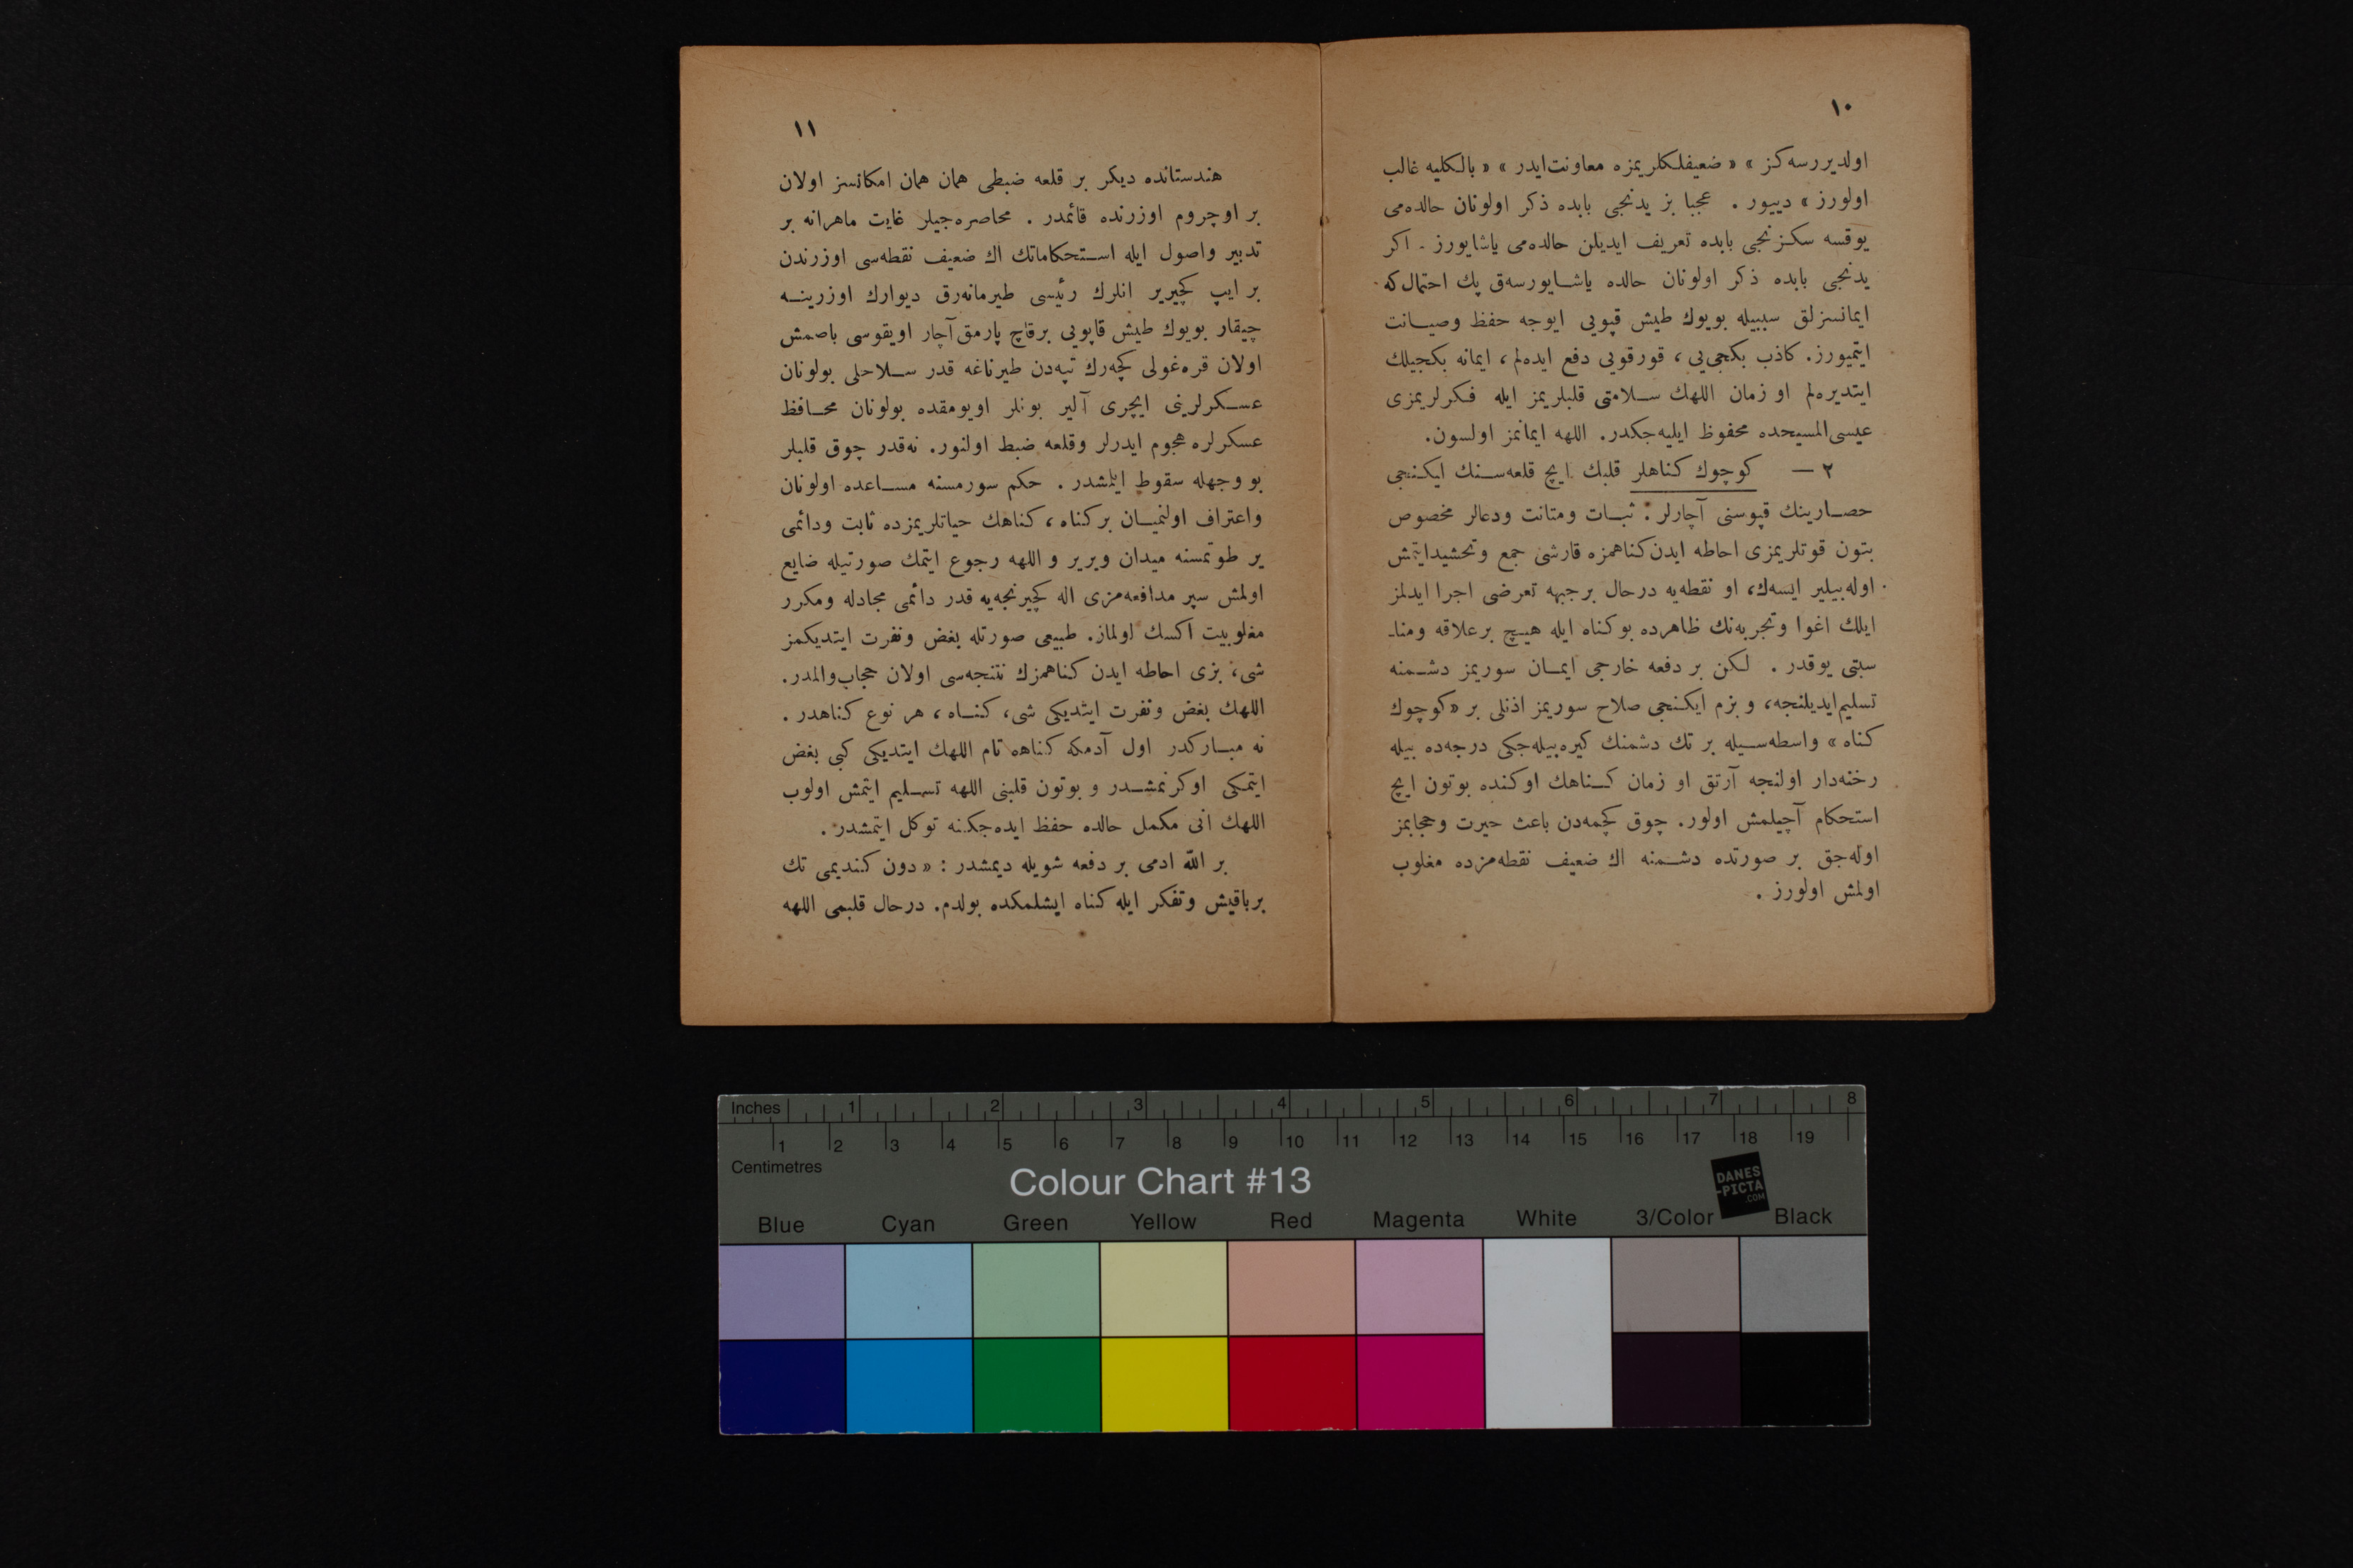 ١٠
اولديررسه‌كز » « ضعيفلكلريمزه معاونت ايدر » « بالكليه غالب
اولورز » دييور . عجبا بز يدنجى بابده ذكر اولونان حالده‌مى
يوقسه سكزنجى بابده تعريف ايديلن حالده‌مى ياشايورز . اكر
يدنجى بابده ذكر اولونان حالده ياشايورسه‌ق پك احتمال كه
ايمانسزلق سببيله بويوك طيش قپويى ايوجه حفظ وصيانت
ايتميورز . كاذب بكجى‌يى ، قورقويى دفع ايده‌لم ، ايمانه بكجيلك
ايتديره‌لم او زمان اللهك سلامتى قلبلريمز ايله فكرلريمزى
عيسى المسيحده محفوظ ايليه‌جكدر. اللهه ايمانمز اولسون.
٢ — كوچوك كناهلر قلبك ايچ قلعه‌سنك ايكنجى
حصارينك قپوسنى آچارلر . ثبات ومتانت ودعالر مخصوص
بتون قوتلريمزى احاطه ايدن كناهمزه قارشى جمع وتحشيد ايتمش
اوله‌بيلير ايسه‌ك، او نقطه‌يه درحال برجبهه تعرضى اجرا ايدلمز
ايلك اغوا وتجربه‌نك ظاهرده بوكناه ايله هيچ برعلاقه ومنا‌ـ
سبتى يوقدر . لكن بر دفعه خارجى ايمان سوريمز دشمنه
تسليم ايديلنجه، و بزم ايكنجى صلاح سوريمز اذنلى بر «كوچوك
كناه» واسطه‌سيله بر تك دشمنك كيره‌بيله‌جكى درجه‌ده بيله
رخنه‌دار اولنجه آرتق او زمان كناهك اوكنده بوتون ايچ
استحكام آچيلمش اولور. چوق كچمه‌دن باعث حيرت وحجابمز
اوله‌جق بر صورتده دشمنه اك ضعيف نقطه‌مزده مغلوب
اولمش اولورز .
١١
هندستانده ديكر بر قلعه ضبطى همان همان امكانسز اولان
بر اوچروم اوزرنده قائمدر . محاصره‌جيلر غايت ماهرانه بر
تدبير واصول ايله استحكاماتك اك ضعيف نقطه‌سى اوزرندن
بر ايپ كچيرير انلرك رئيسى طيرمانه‌رق ديوارك اوزرينه
چيقار بويوك طيش قاپويى برقاچ پارمق آچار اويقوسى باصمش
اولان قره‌غولى كچه‌رك تپه‌دن طيرناغه قدر سلاحلى بولونان
عسكرلرينى ايچرى آلير بونلر اويومقده بولونان محافظ
عسكرلره هجوم ايدرلر وقلعه ضبط اولنور. نه‌قدر چوق قلبلر
بو وجهله سقوط ايتمشدر . حكم سورمسنه مساعده اولونان
واعتراف اولنميان بركناه ، كناهك حياتلريمزده ثابت ودائمى
ير طوتمسنه ميدان ويرير و اللهه رجوع ايتمك صورتيله ضايع
اولمش سپر مدافعه‌مزى اله كچيرنجه‌يه قدر دائمى مجادله ومكرر
مغلوبيت اكسك اولماز. طبيعى صورتله بغض ونفرت ايتديكمز
شى، بزى احاطه ايدن كناهمزك نتنجه‌سى اولان حجاب والمدر.
اللهك بغض ونفرت ايتديكى شى، كناه ، هر نوع كناهدر .
نه مباركدر اول آدمكه كناهه تام اللهك ايتديكى كبى بغض
ايتمكى اوكرنمشدر و بوتون قلبنى اللهه تسليم ايتمش اولوب
اللهك انى مكمل حالده حفظ ايده‌جكنه توكل ايتمشدر .
بر الله ادمى بر دفعه شويله ديمشدر : « دون كنديمى تك
برباقيش وتفكر ايله كناه ايشلمكده بولدم. درحال قلبمى اللهه
Inches 1 2 3 4 5 6 7 8
1 2 3 4 5 6 7 8 9 10 11 12 13 14 15 16 17 18 19
Centimetres
Colour Chart #13
DANES
-PICTA
.COM
Blue Cyan Green Yellow Red Magenta White 3/Color Black